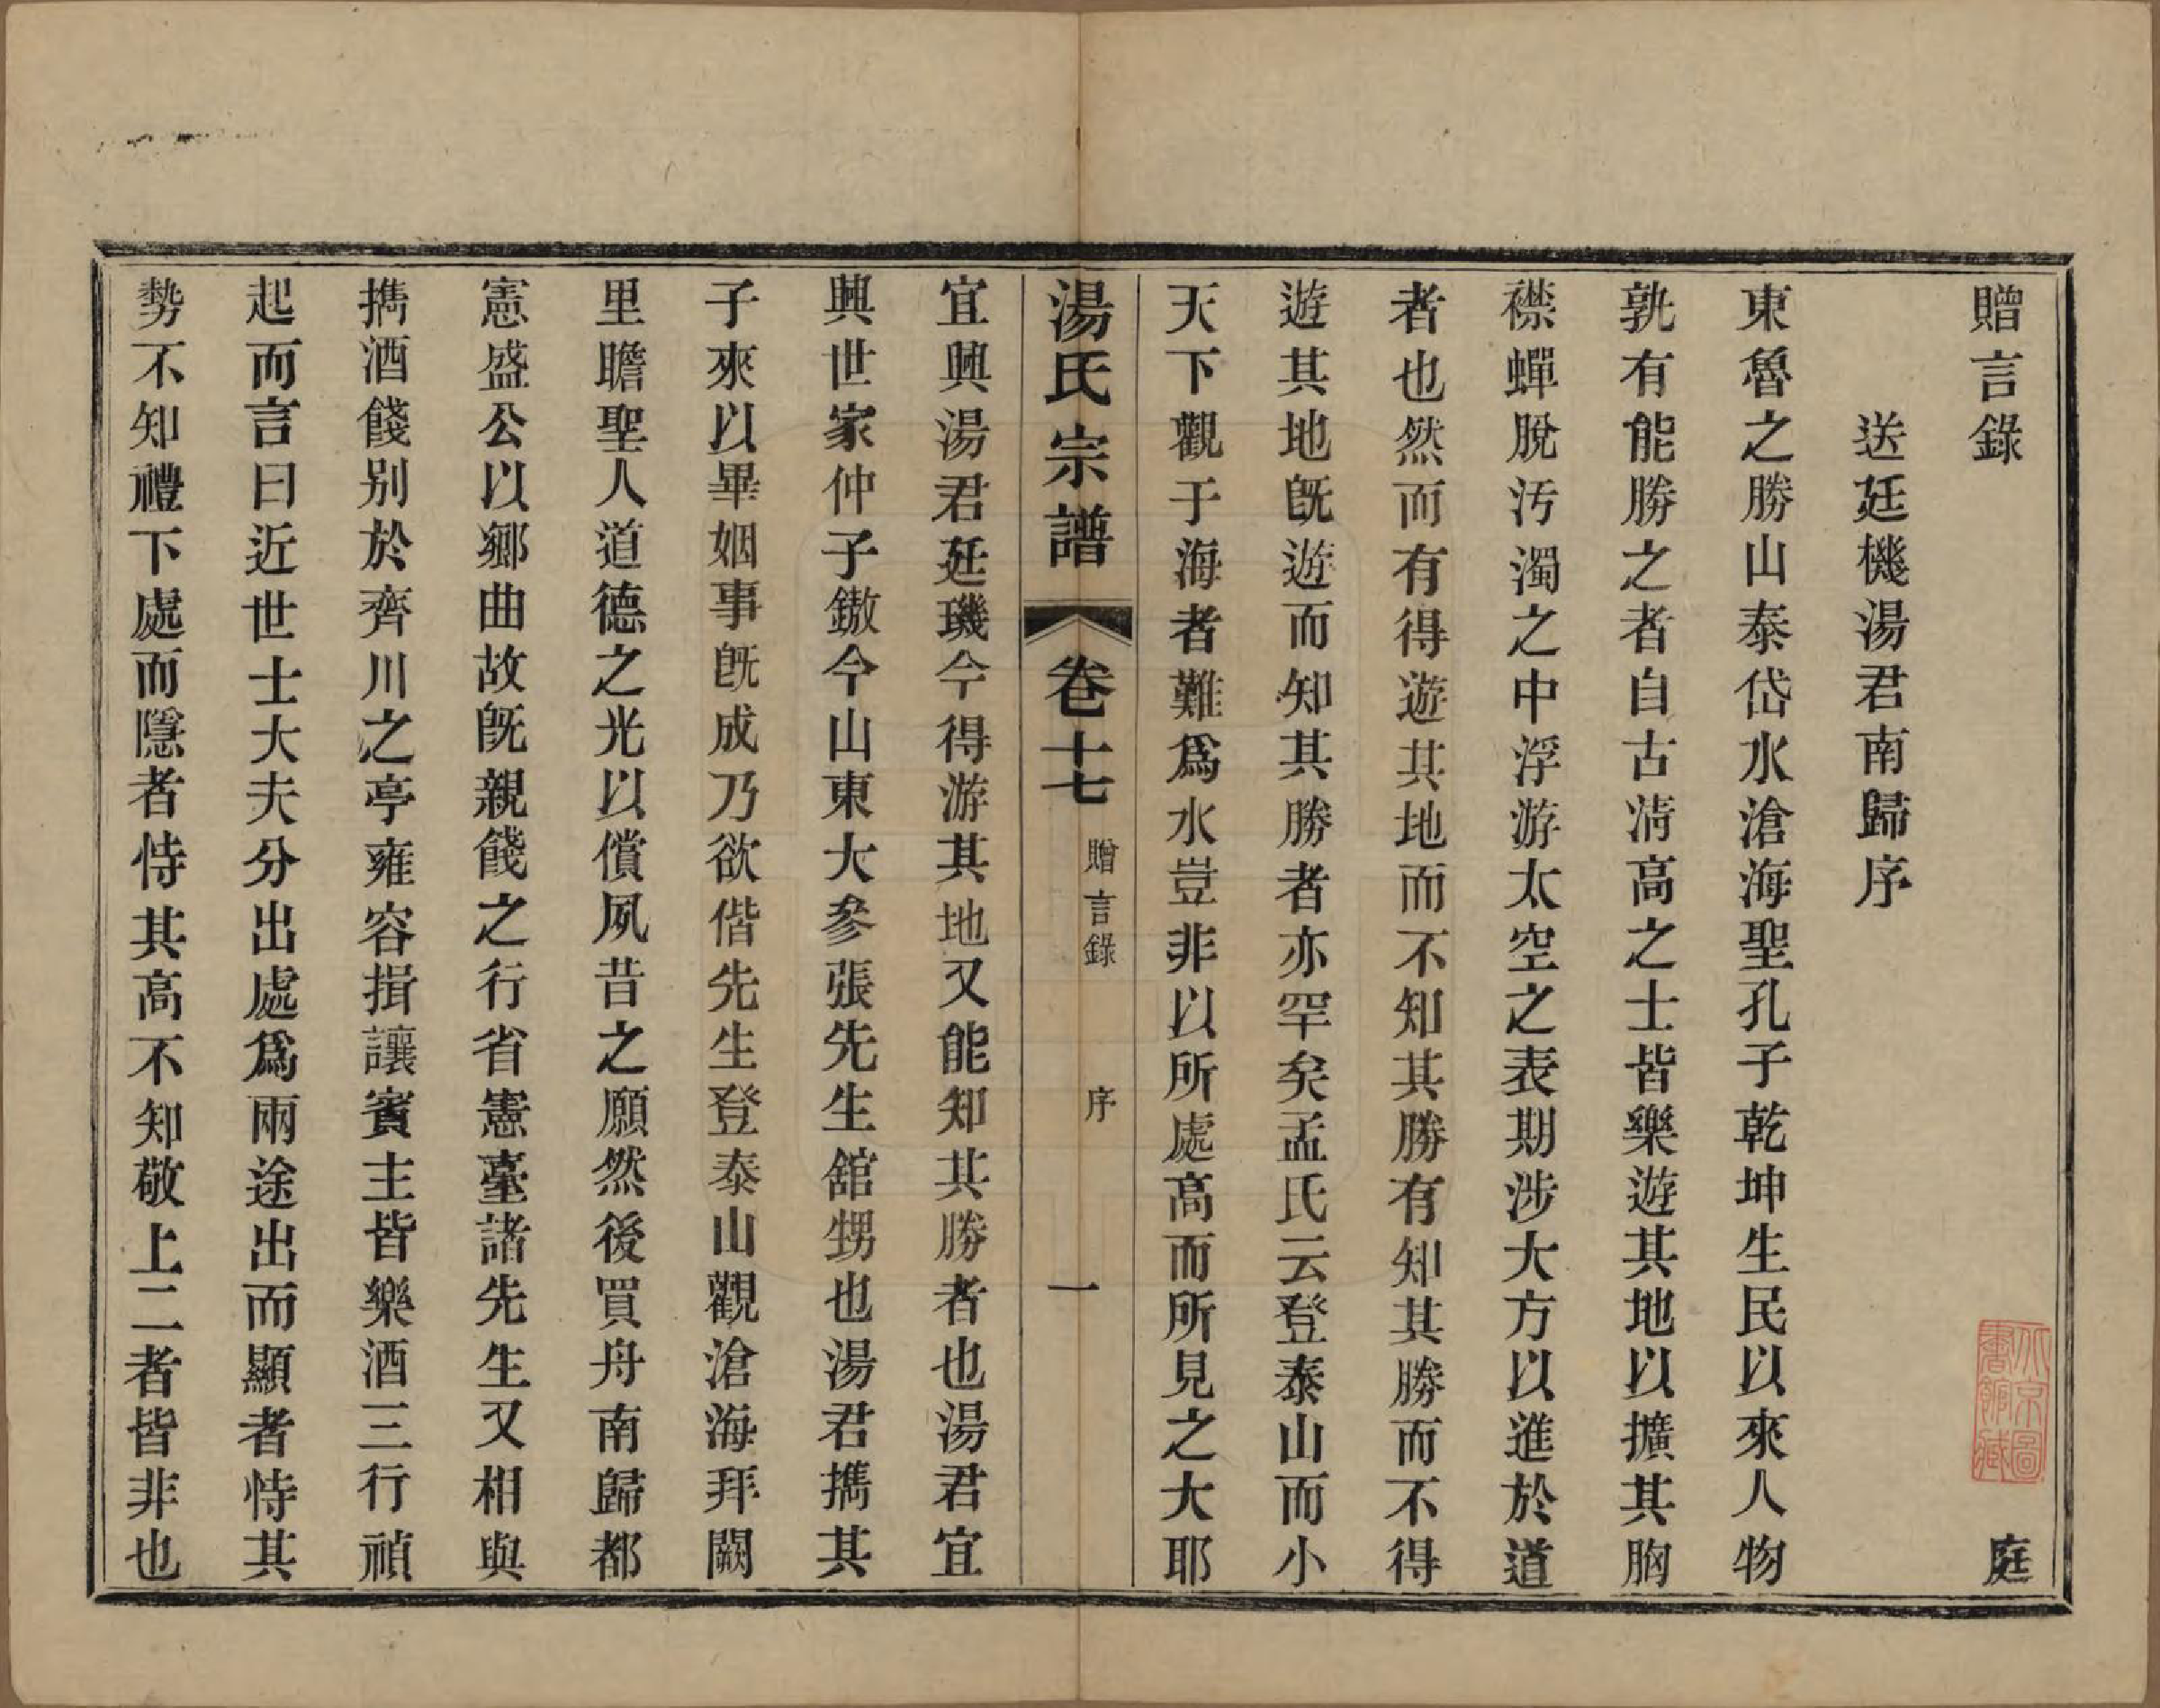 贈言錄 庭
送廷機湯君南歸序
東魯之勝山泰岱水滄海聖孔子乾坤生民以來人物
孰有能勝之者自古淸高之士皆樂遊其地以擴其胸
襟蟬脫汚濁之中浮游太空之表期涉大方以進於道
者也然而有得遊其地而不知其勝有知其勝而不得
遊其地旣遊而知其勝者亦罕矣孟氏云登泰山而小
天下觀于海者難爲水豈非以所處高而所見之大耶
湯氏宗譜 卷十七 贈言錄 序 一
宜興湯君廷璣今得游其地又能知其勝者也湯君宜
興世家仲子鏾今山東大參張先生舘甥也湯君攜其
子來以畢姻事旣成乃欲偕先生登泰山觀滄海拜闕
里瞻聖人道德之光以償夙昔之願然後買舟南歸都
憲盛公以鄉曲故旣親餞之行省憲臺諸先生又相與
攜酒餞别於齊川之亭雍容揖讓賓主皆樂酒三行禎
起而言曰近世士大夫分出處爲兩途出而顯者恃其
勢不知禮下處而隱者恃其高不知敬上二者皆非也
北京圖書館藏